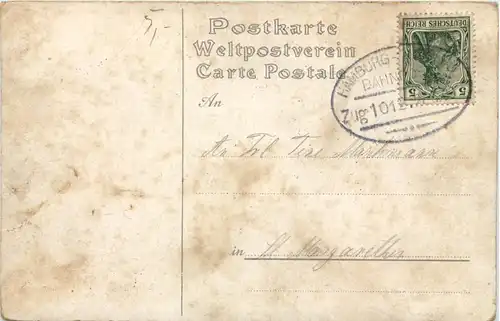 5,-
Postkarte
Weltpostverein
Carte Postale
DEUTSCHES REICH
5 5
HAMBURG-
BAHN
Zug 101
An
An Frl. Tine Markmann
in St Margarethen